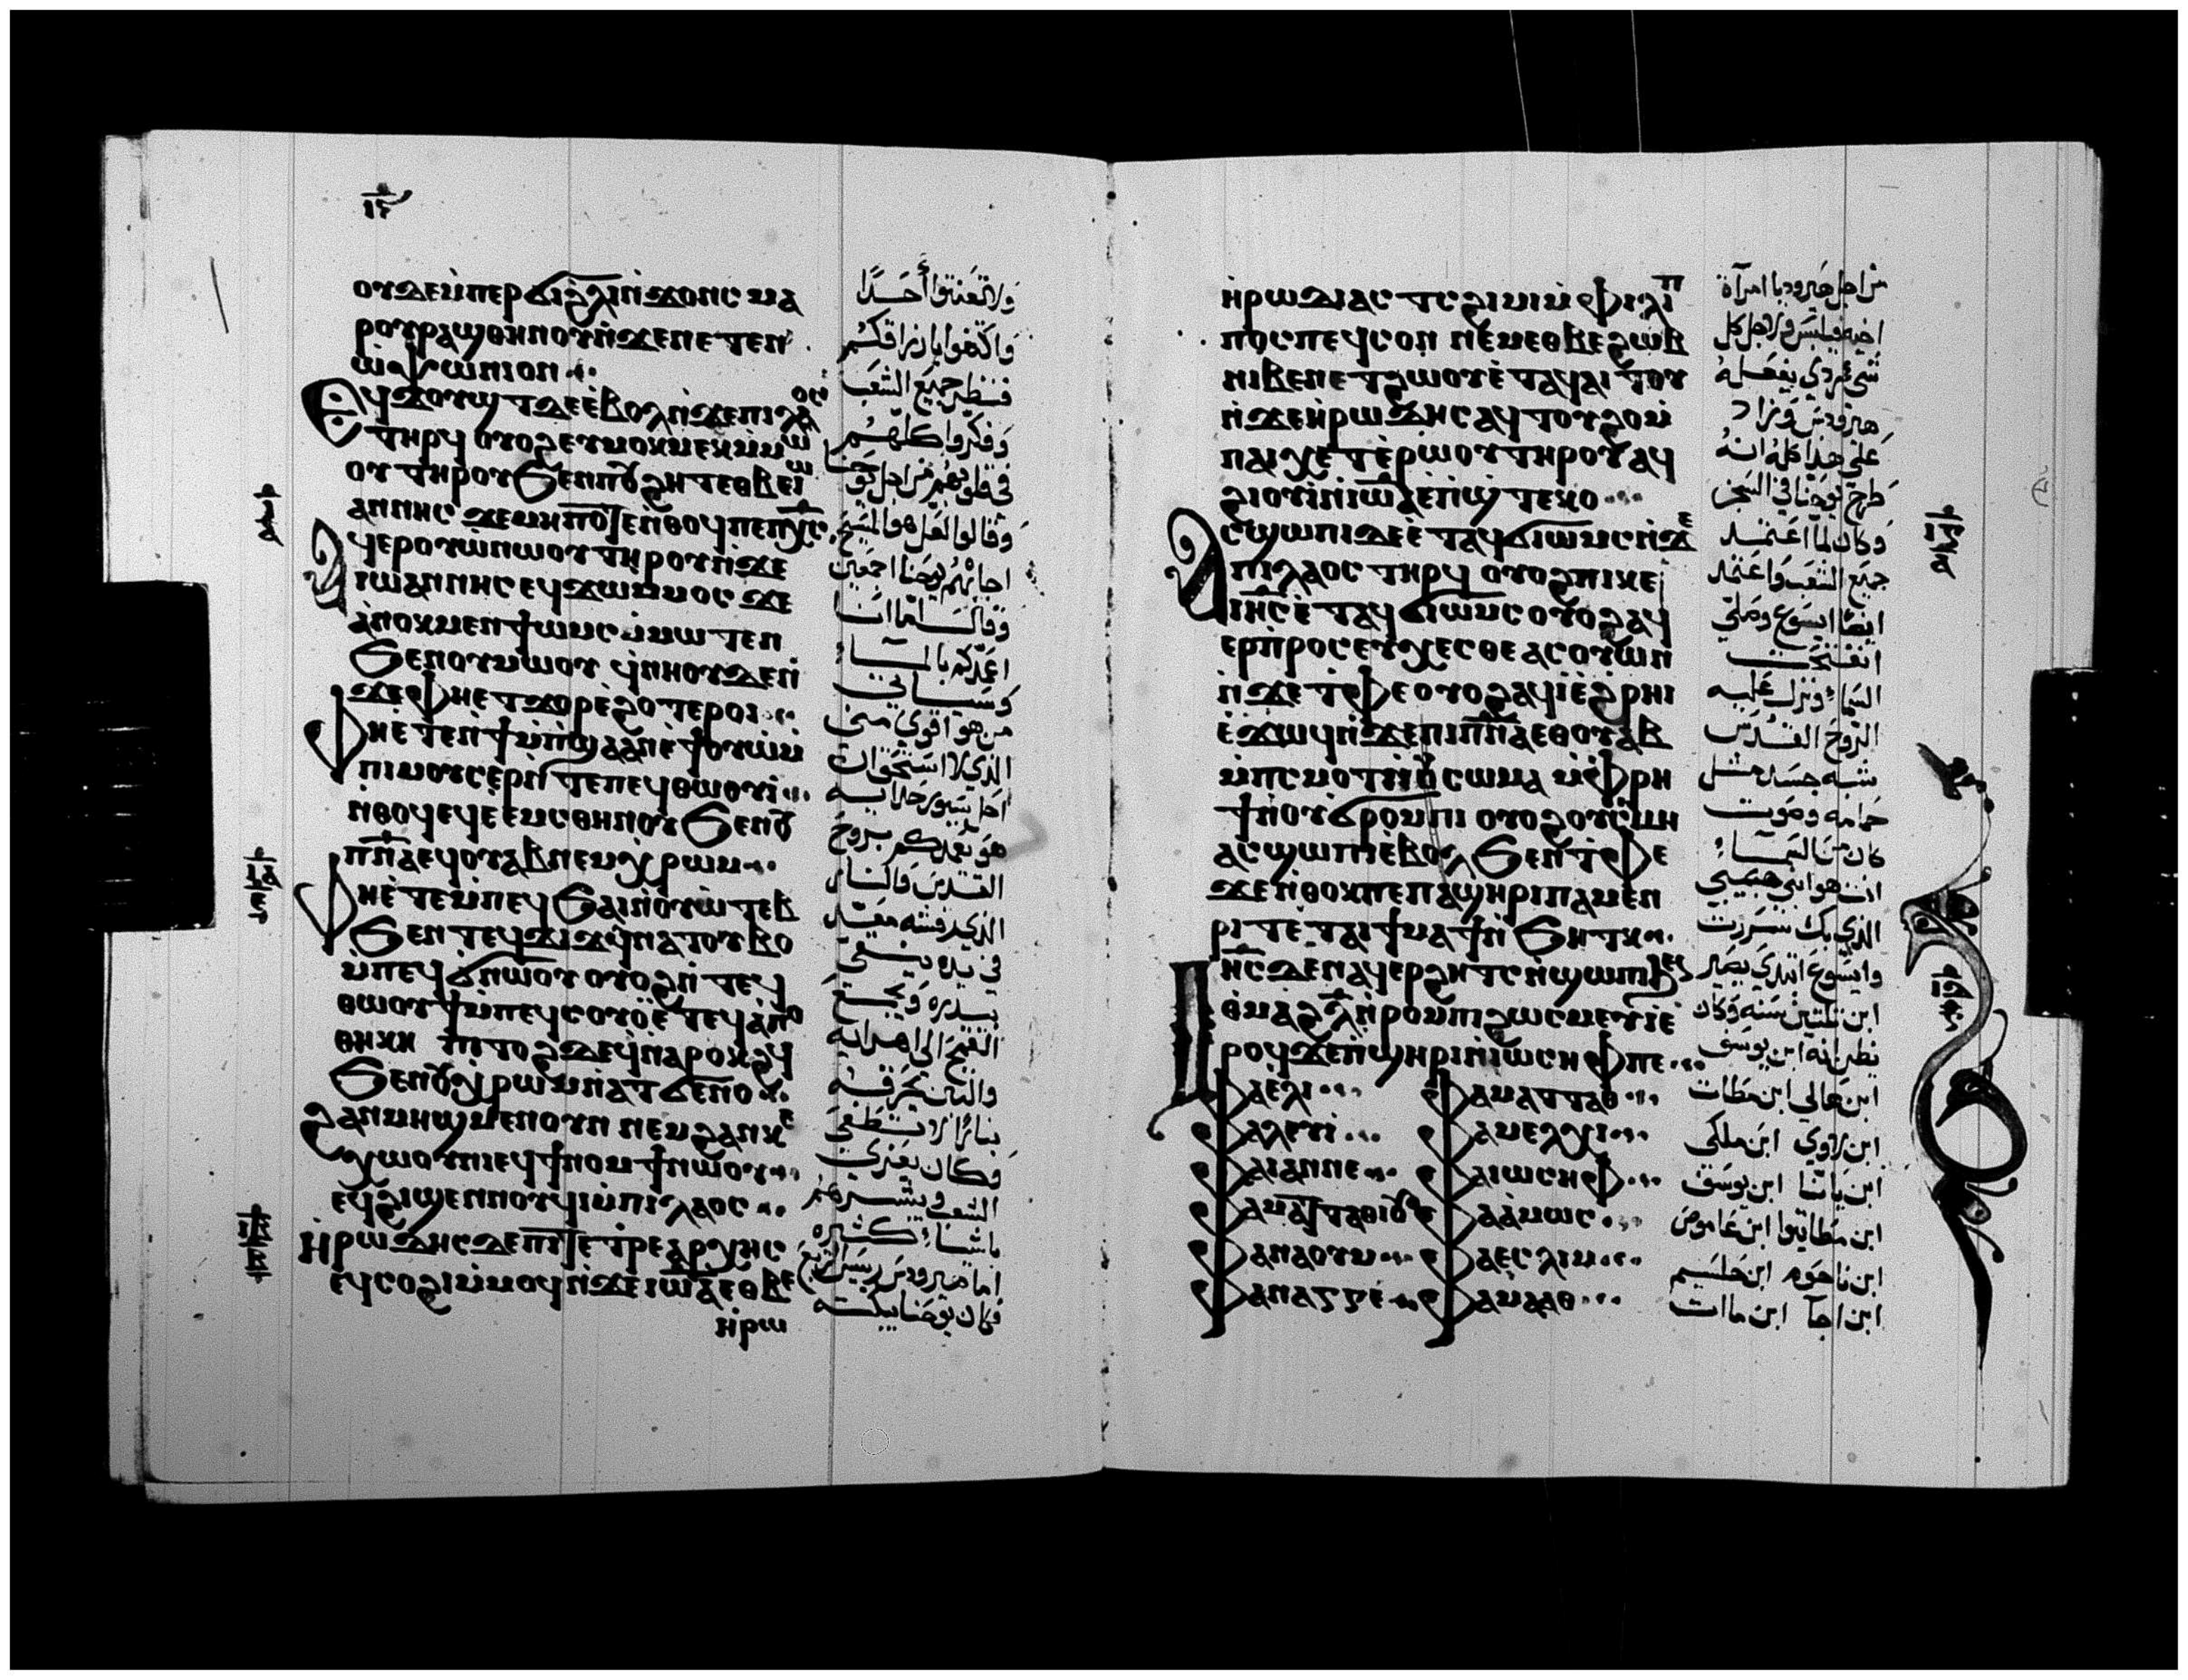 ⲟⲩⲇⲉ ⲙ̀ⲡⲉⲣϭⲓ ϩⲗⲓ ⲛ̀ϫⲟⲛⲥ ⲙⲁ
ⲣⲟⲩⲣⲁϣⲑⲏⲛⲟⲩ ⲛ̀ϫⲉ ⲛⲉⲧⲉⲛ
ⲟ̀ⲯⲱⲛⲓⲟⲛ
ⲉϥϫⲟⲩϣⲧ ⲇⲉ ⲉ̀ⲃⲟⲗ ⲛ̀ϫⲉ ⲡⲓⲗⲁⲟⲥ
ⲧⲏⲣϥ ⲟⲩⲟϩ ⲉⲩⲙⲟⲕⲙⲉⲕ ⲙ̀ⲙⲱ
ⲟⲩ ⲧⲏⲣⲟⲩ ϧⲉⲛ ⲡⲟⲩϩⲏⲧ ⲉⲑⲃⲉ ⲓⲱ
ⲁⲛⲛⲏⲥ ϫⲉ ⲙⲏⲡⲟⲧⲉ ⲛ̀ⲑⲟϥ ⲡⲉ ⲡⲭ̅ⲥ̅
ⲁϥⲉⲣⲟⲩⲱ̀ ⲛⲱⲟⲩ ⲧⲏⲣⲟⲩ ⲛ̀ϫⲉ
ⲓⲱⲁⲛⲛⲏⲥ ⲉϥϫⲱ ⲙ̀ⲙⲟⲥ ϫⲉ
ⲁ̀ⲛⲟⲕ ⲙⲉⲛ ϯⲱⲙⲥ ⲙ̀ⲙⲱⲧⲉⲛ
ϧⲉⲛ ⲟⲩⲙⲱⲟⲩ ϥ̀ⲛⲏⲟⲩ ⲇⲉ ⲛ̀
ϫⲉ ⲫⲏ ⲉⲧϫⲟⲣ ⲉ̀ϩⲟⲧⲉⲣⲟⲓ
ⲫⲏ ⲉ̀ⲧⲉⲛ̀ϯⲙ̀ⲡϣⲁ ⲁⲛ ⲉ̀ϯⲟⲩⲱ̀ ⲙ̀
ⲡⲓⲙⲟⲩⲥⲉⲣ ⲛ̀ⲧⲉ ⲡⲉϥⲑⲱⲟⲩⲓ̀
ⲛ̀ⲑⲟϥ ⲉϥⲉ̀ⲉⲙⲥⲑⲏⲛⲟⲩ ϧⲉⲛ ⲟⲩ
ⲡ̅ⲛ̅ⲁ̅ ⲉϥⲟⲩⲁⲃ ⲛⲉⲙ ⲭⲣⲱⲙ
ⲫⲏ ⲉ̀ⲧⲉ ⲙ̀ⲡⲉϥϧⲁⲓ ⲛ̀ⲟⲩⲱ̀ⲧⲉⲃ
ϧⲉⲛ ⲧⲉϥϫⲓϫ ϥ̀ⲛⲁⲧⲟⲩⲃⲟ
ⲙ̀ⲡⲉϥϭⲛⲱⲟⲩ ⲟⲩⲟϩ ⲛ̀ⲧⲉϥ
ⲑⲱⲟⲩϯ ⲙ̀ⲡⲉϥⲥⲟⲩⲟ̀ ⲉ̀ⲧⲉϥⲁ̀ⲡⲟ
ⲑⲏⲕⲏ ⲡⲓⲧⲟϩ ⲇⲉ ϥ̀ⲛⲁⲣⲟⲕϩϥ
ϧⲉⲛ ⲟⲩⲭⲣⲱⲙ ⲛ̀ⲁⲧϭⲉⲛⲟ
ϩⲁⲛⲙⲏϣ ⲙⲉⲛ ⲟⲩⲛ ⲛⲉⲙ ϩⲁⲛⲕⲉ
ⲭⲱⲟⲩⲛⲓ ⲉϥϯⲛⲟⲙϯ ⲛⲱⲟⲩ
ⲉϥϩⲓϣⲉⲛⲛⲟⲩϥⲓ ⲙ̀ⲡⲓⲗⲁⲟⲥ
ⲏ̀ⲣⲱⲇⲏⲥ ⲇⲉ ⲡⲓⲧⲉⲧⲣⲉⲁⲣⲭⲏⲥ
ⲉϥⲥⲟϩⲓ ⲙ̀ⲙⲟϥ ⲛ̀ϫⲉ ⲓⲱⲁ ⲉⲑⲃⲉ
ⲏ̀ⲣⲱ
ولا تعنتوا أحدًا
واكتفوا بارزاقكم
فنظر جميع الشعب
وفكروا كلهم
في قلوبهم من اجل يوحنا
وقالوا لعل هو المسيح
اجابهم يوحنا اجمعين
وقال اما انا
اعمدكم بالماء
وسياتي
من هو اقوى مني
الذي لا استحق ان
احل سيور حذايه
هو يعمدكم بروح
القدس والنار
الذي رفشه
في يده ينقي
بيدره ويجمع
القمح الى اهرائه
والتبن يحرقه
بنار لا تطفى
وكان يعزي
الشعب ويبشرهم
باشياء كثيره
اما هيرودس رييس الربع
فكان يوحنا يبكته
ⲏ̀ⲣⲱⲇⲓⲁⲥ ⲧⲥϩⲓⲙⲓ ⲙ̀ⲫⲓⲗⲓⲡ
ⲡⲟⲥ ⲡⲉϥⲥⲟⲛ ⲛⲉⲙ ⲉⲑⲃⲉ ϩⲱⲃ
ⲛⲓⲃⲉⲛ ⲉⲧϩⲱⲟⲩ ⲉ̀ⲧⲁϥⲁⲓⲧⲟⲩ
ⲛ̀ϫⲉ ⲏ̀ⲣⲱⲇⲏⲥ ⲁϥⲧⲟⲩϩⲟ ⲙ̀
ⲡⲁⲓⲭⲉⲧ ⲉ̀ⲣⲱⲟⲩ ⲧⲏⲣⲟⲩ ⲁϥ
ϩⲓⲟⲩⲓ̀ ⲛ̀ⲓⲱⲁ ⲉ̀ⲡϣⲧⲉⲕⲟ
ⲁⲥϣⲱⲡⲓ ⲇⲉ ⲉ̀ⲧⲁϥϭⲓⲱⲙⲥ ⲛ̀ϫⲉ
ⲡⲓⲗⲁⲟⲥ ⲧⲏⲣϥ ⲟⲩⲟϩ ⲡⲓⲕⲉ
ⲓⲏ̅ⲥ̅ ⲉ̀ⲧⲁϥϭⲓⲱⲙⲥ ⲟⲩⲟϩ ⲁϥ
ⲉⲣⲡ̀ⲣⲟⲥⲉⲩⲭⲉⲥⲑⲉ ⲁⲥⲟⲩⲱⲛ
ⲛ̀ϫⲉ ⲧ̀ⲫⲉ ⲟⲩⲟϩ ⲁϥⲓ̀ ⲉ̀ϩ̀ⲣⲏⲓ
ⲉ̀ϫⲱϥ ⲛ̀ϫⲉ ⲡⲓⲡ̅ⲛ̅ⲁ̅ ⲉⲑⲟⲩⲁⲃ
ⲙ̀ⲡⲥⲙⲟⲧ ⲛ̀ⲟⲩⲥⲱⲙⲁ ⲙ̀ⲫⲣⲏ
ϯ ⲛ̀ⲟⲩϭⲣⲟⲙⲡⲓ ⲟⲩⲟϩ ⲟⲩⲥⲙⲏ
ⲁⲥϣⲱⲡⲓ ⲉ̀ⲃⲟⲗ ϧⲉⲛ ⲧ̀ⲫⲉ
ϫⲉ ⲛ̀ⲑⲟⲕ ⲡⲉ ⲡⲁϣⲏⲣⲓ ⲡⲁⲙⲉⲛ
ⲣⲓⲧ ⲉ̀ⲧⲁⲓϯⲙⲁϯ ⲛ̀ϧⲏⲧⲕ
ⲓⲏ̅ⲥ̅ ⲇⲉ ⲛⲁϥⲉⲣϩⲏⲧⲥ ⲛ̀ϣⲱⲡⲓ ⲉϥ
ϧⲉⲛ ⲑⲙⲁϩ ⲗ̅ ⲛ̀ⲣⲟⲙⲡⲓ ϩⲱⲥ ⲙⲉⲩⲓ̀ ⲉ̀
ⲣⲟϥ ϫⲉ ⲡ̀ϣⲏⲣⲓ ⲛ̀ⲓⲱⲥⲏⲫ ⲡⲉ
ⲫⲁ ⲏ̀ⲗⲓ ⲫⲁ ⲙⲁⲧⲧⲁⲑ
ⲫⲁ ⲗⲉⲩⲓ̀ ⲫⲁ ⲙⲉⲗⲭⲓ
ⲫⲁ ⲓⲁⲛⲛⲉ ⲫⲁ ⲓⲱⲥⲏⲫ
ⲫⲁ ⲙⲁⲧⲧⲁⲑⲓⲟⲩ ⲫⲁ ⲁ̀ⲙⲱⲥ
ⲫⲁ ⲛⲁⲟⲩⲙ ⲫⲁ ⲉⲥⲗⲓⲙ
ⲫⲁ ⲛⲁⲅⲅⲉ ⲫⲁ ⲙⲁⲁⲑ
من اجل هيروديا امرآة
اخيه فيلبس ولاجل كل
شي ردي يفعله
هيرودس وزاد
على هذا كله انه
طرح يوحنا في السجن
وكان لما اعتمد
جميع الشعب واعتمد
ايضًا ايسوع وصلي
انفتحت
السماء ونزل عليه
الروح القدس
شبه جسد مثل
حمامه وصوت
كان من السماء
انت هو ابني حبيبي
الذي بك سررت
وايسوع ابتدي يصير
ابن ثلثين سنه وكان
يظن انه ابن يوسف
ابن هالي ابن مطات
ابن لاوي ابن ملكي
ابن يانا ابن يوسف
ابن مطاتيوا ابن عاموص
ابن ناحوم ابن حليم
ابن اجآ ابن ماات